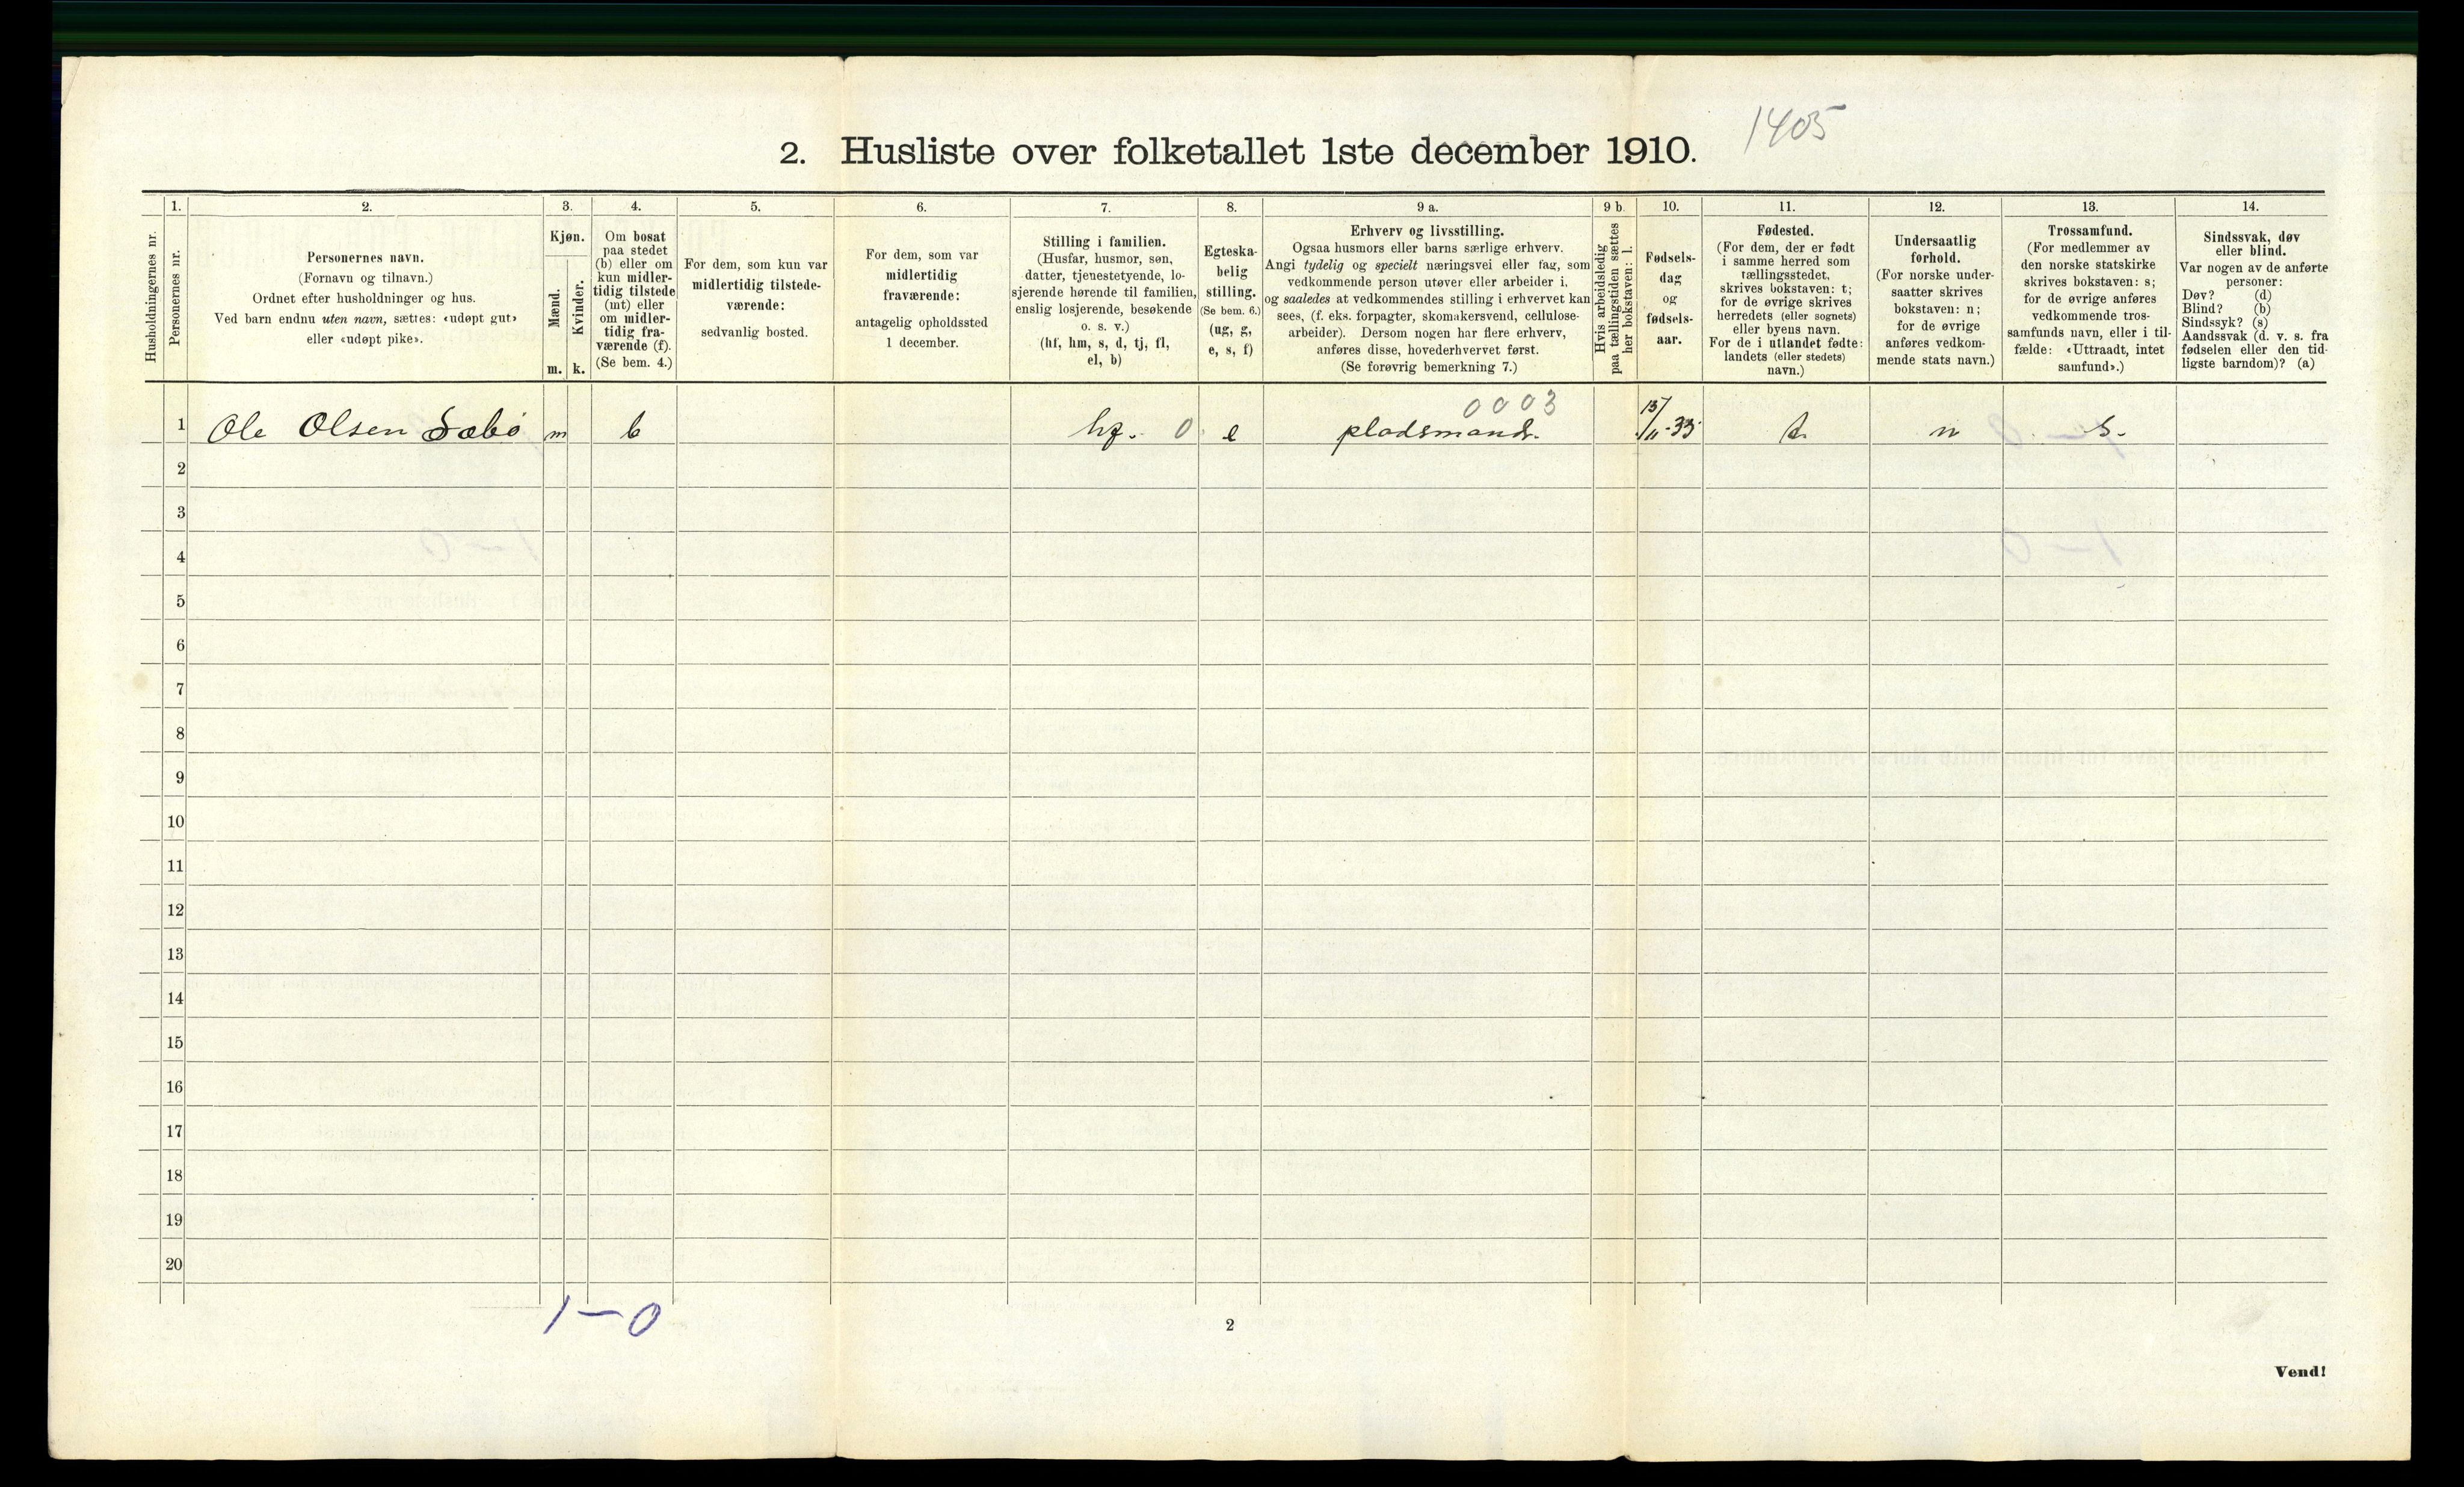 1405
2. Husliste over folketallet 1ste december 1910.
Husholdningernes nr.
1.
Personernes nr.
2.
Personernes navn.
(Fornavn og tilnavn.)
Ordnet efter husholdninger og hus.
Ved barn endnu uten navn, sættes: «udøpt gut»
eller «udøpt pike».
3.
Kjøn.
Mænd.
Kvinder.
m. k.
4.
Om bosat
paa stedet
(b) eller om
kun midler-
tidig tilstede
(mt) eller
om midler-
tidig fra-
værende (f).
(Se bem. 4.)
5.
For dem, som kun var
midlertidig tilstede-
værende:
sedvanlig bosted.
6.
For dem, som var
midlertidig
fraværende:
antagelig opholdssted
1 december.
7.
Stilling i familien.
(Husfar, husmor, søn,
datter, tjenestetyende, lo-
sjerende hørende til familien,
enslig losjerende, besøkende
o. s. v.)
(hf, hm, s, d, tj, fl,
el, b)
8.
Egteska-
belig
stilling.
(Se bem. 6.)
(ug, g,
e, s, f)
9 a.
Erhverv og livsstilling.
Ogsaa husmors eller barns særlige erhverv.
Angi tydelig og specielt næringsvei eller fag, som
vedkommende person utøver eller arbeider i,
og saaledes at vedkommendes stilling i erhvervet kan
sees, (f. eks. forpagter, skomakersvend, cellulose-
arbeider). Dersom nogen har flere erhverv,
anføres disse, hovederhvervet først.
(Se forøvrig bemerkning 7.)
9 b.
Hvis arbeidsledig
paa tællingstiden sættes
her bokstaven: l.
10.
Fødsels-
dag
og
fødsels-
aar.
11.
Fødested.
(For dem, der er født
i samme herred som
tællingsstedet,
skrives bokstaven: t;
for de øvrige skrives
herredets (eller sognets)
eller byens navn.
For de i utlandet fødte:
landets (eller stedets)
navn.)
12.
Undersaatlig
forhold.
(For norske under-
saatter skrives
bokstaven: n;
for de øvrige
anføres vedkom-
mende stats navn.)
13.
Trossamfund.
(For medlemmer av
den norske statskirke
skrives bokstaven: s;
for de øvrige anføres
vedkommende tros-
samfunds navn, eller i til-
fælde: «Uttraadt, intet
samfund».)
14.
Sindssvak, døv
eller blind.
Var nogen av de anførte
personer:
Døv? (d)
Blind? (b)
Sindssyk? (s)
Aandssvak (d. v. s. fra
fødselen eller den tid-
ligste barndom)? (a)
0003
1 Ole Olsen Sæbö m b hf. 0 e pladsmand. 15/11-33 t. n s.
2
3
4
5
6
7
8
9
10
11
12
13
14
15
16
17
18
19
20
1-0
2
Vend!